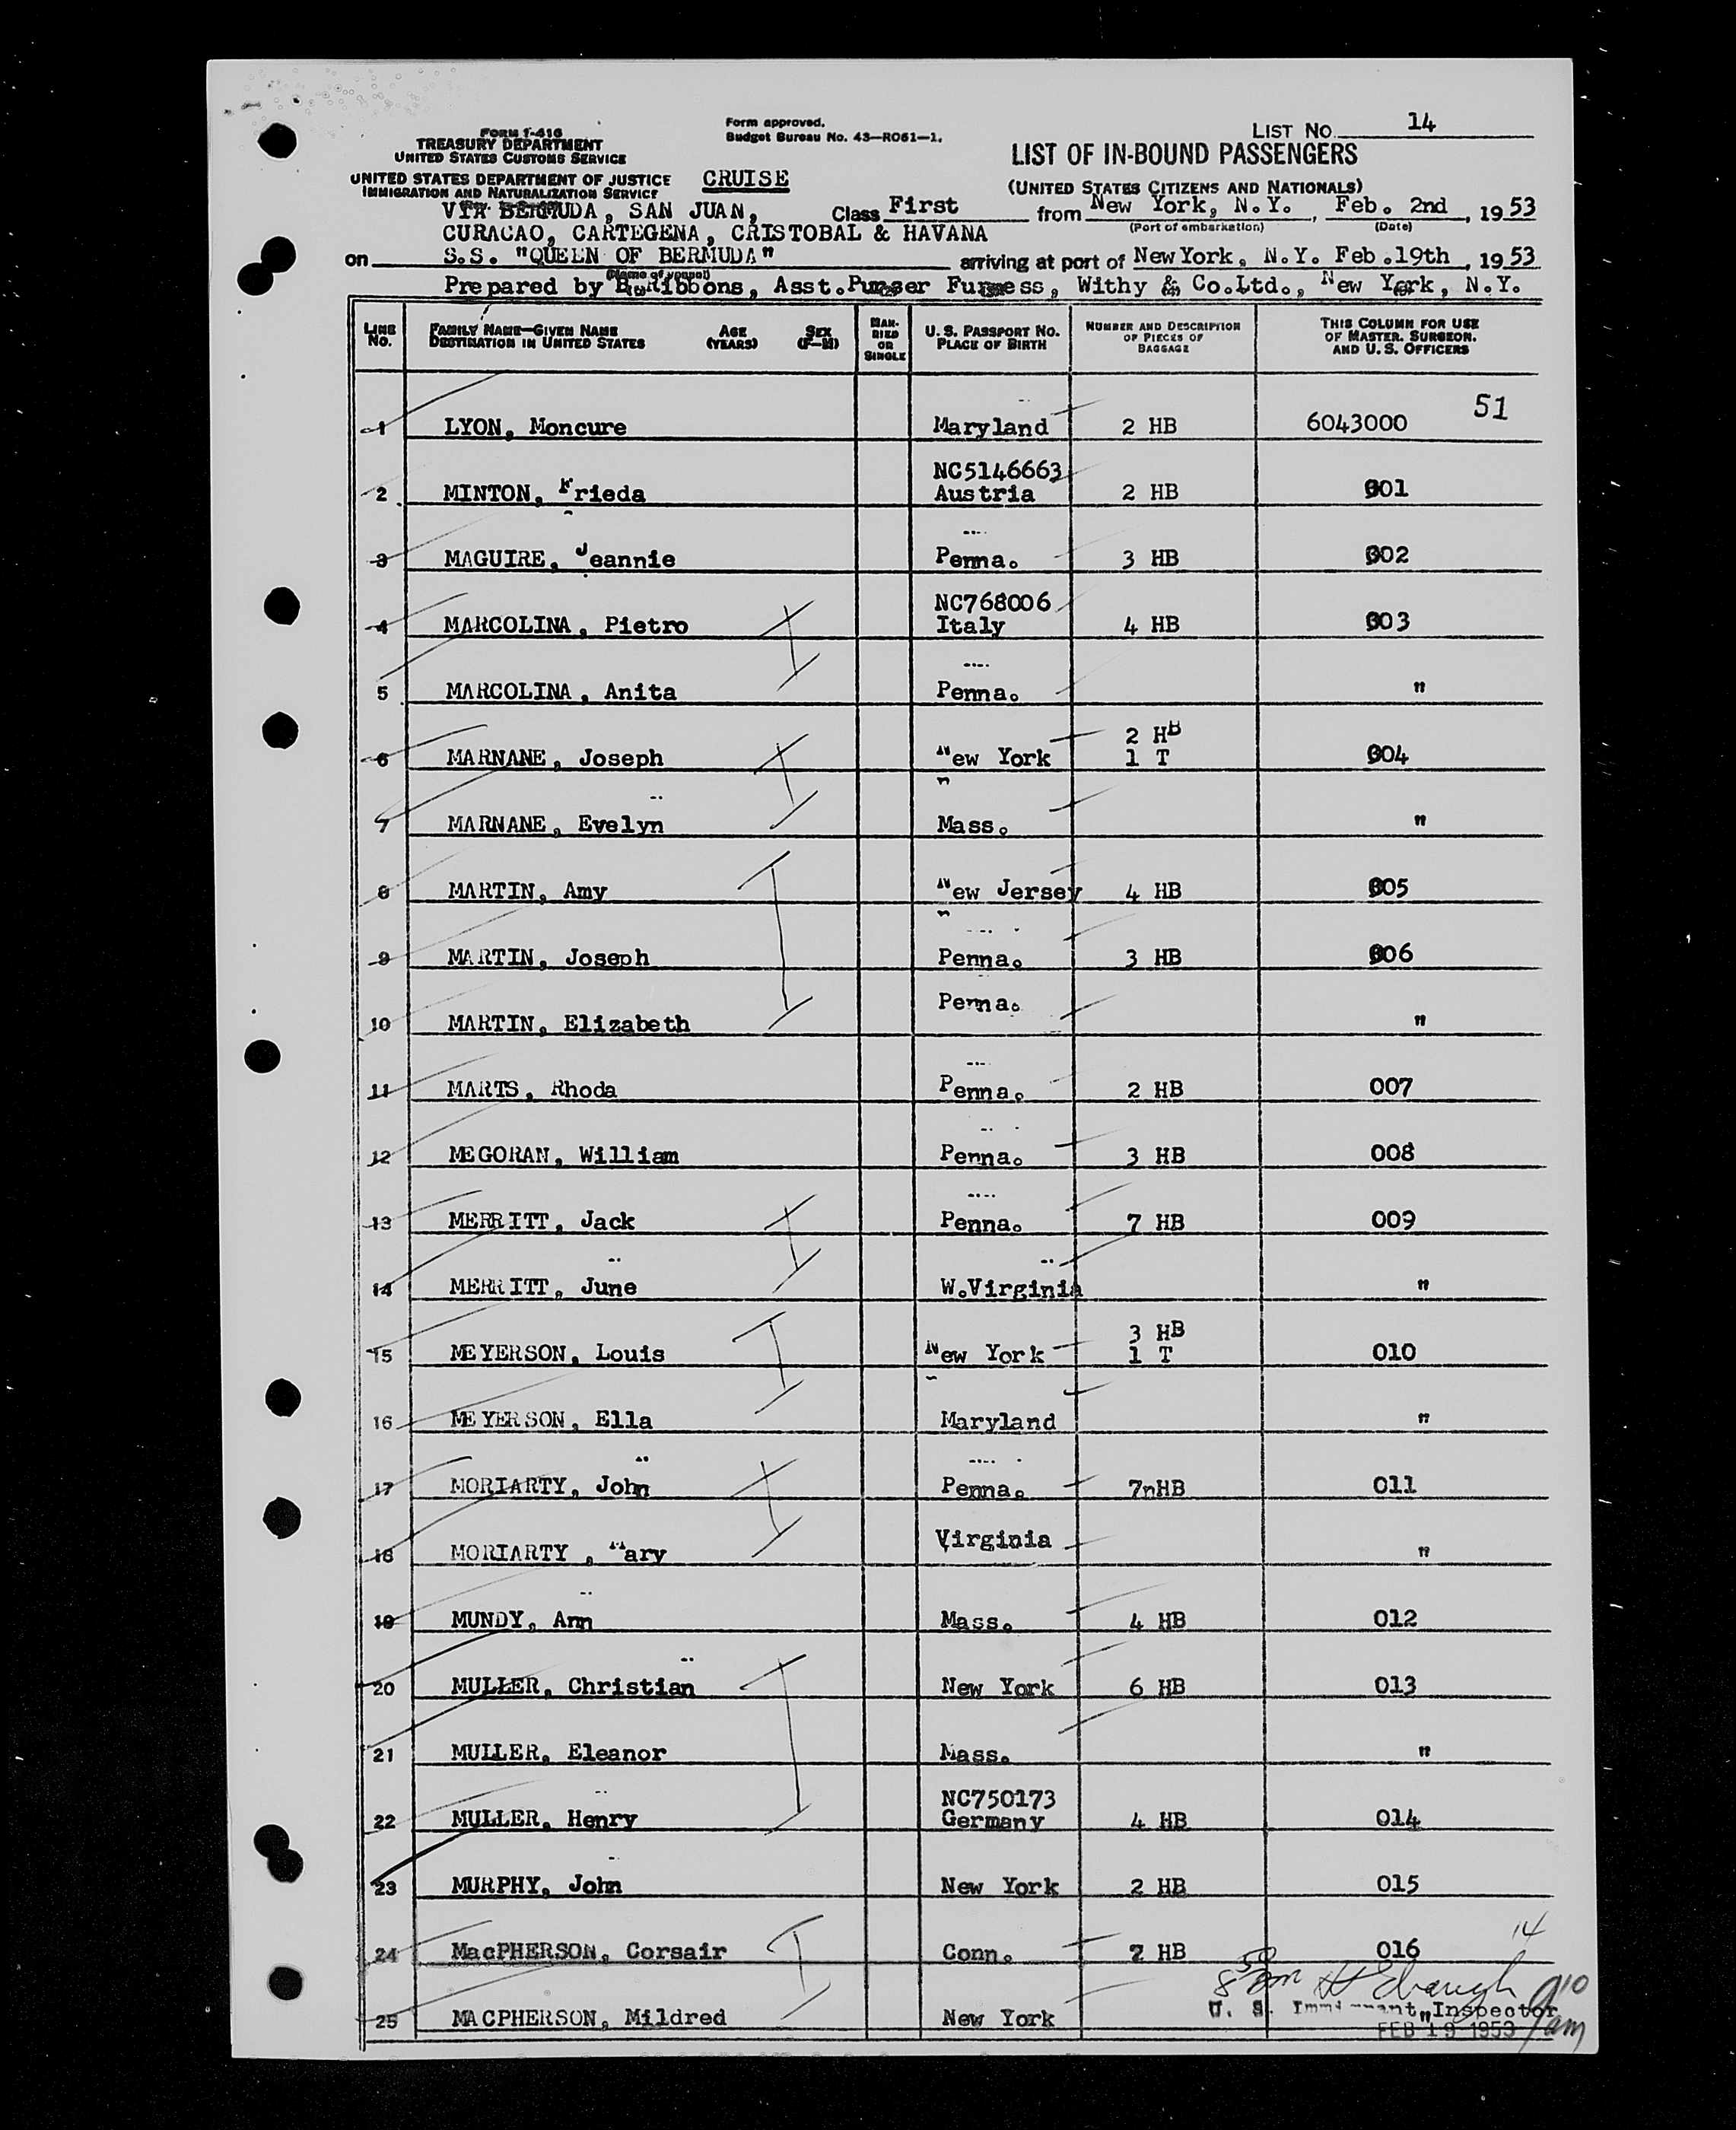 FORM I-416
TREASURY DEPARTMENT
UNITED STATES CUSTOMS SERVICE
UNITED STATES DEPARTMENT OF JUSTICE
IMMIGRATION AND NATURALIZATION SERVICE
Form approved.
Budget Bureau No. 43—R061—1.
CRUISE
LIST NO. 14
LIST OF IN-BOUND PASSENGERS
(UNITED STATES CITIZENS AND NATIONALS)
VIA BERMUDA, SAN JUAN, Class First from New York, N.Y., Feb. 2nd, 1953
(Port of embarkation) (Date)
CURACAO, CARTEGENA, CRISTOBAL & HAVANA
on S.S. "QUEEN OF BERMUDA" arriving at port of New York, N.Y. Feb.19th, 1953
(Name of vessel)
Prepared by Ribbons, Asst.Purser Furness, Withy & Co.Ltd., New York, N.Y.
LINE NO. FAMILY NAME—GIVEN NAME DESTINATION IN UNITED STATES AGE (YEARS) SEX (F—M) MARRIED OR SINGLE U. S. PASSPORT NO. PLACE OF BIRTH NUMBER AND DESCRIPTION OF PIECES OF BAGGAGE THIS COLUMN FOR USE OF MASTER, SURGEON, AND U. S. OFFICERS
51
1 LYON, Moncure Maryland 2 HB 6043000
NC5146663
2 MINTON, Frieda Austria 2 HB 001
3 MAGUIRE, Jeannie Penna. 3 HB 002
NC768006
4 MARCOLINA, Pietro Italy 4 HB 003
5 MARCOLINA, Anita Penna. "
2 HB
6 MARNANE, Joseph New York 1 T 004
7 MARNANE, Evelyn Mass. "
8 MARTIN, Amy New Jersey 4 HB 005
9 MARTIN, Joseph Penna. 3 HB 006
10 MARTIN, Elizabeth Penna. "
11 MARTS, Rhoda Penna. 2 HB 007
12 MEGORAN, William Penna. 3 HB 008
13 MERRITT, Jack Penna. 7 HB 009
14 MERRITT, June W.Virginia "
3 HB
15 MEYERSON, Louis New York 1 T 010
16 MEYERSON, Ella Maryland "
17 MORIARTY, John Penna. 7nHB 011
18 MORIARTY, Mary Virginia "
19 MUNDY, Ann Mass. 4 HB 012
20 MULLER, Christian New York 6 HB 013
21 MULLER, Eleanor Mass. "
NC750173
22 MULLER, Henry Germany 4 HB 014
23 MURPHY, John New York 2 HB 015
14
24 MacPHERSON, Corsair Conn. 2 HB 016
25 MACPHERSON, Mildred New York "
U. S. Immigrant Inspector
FEB 19 1953
910 am